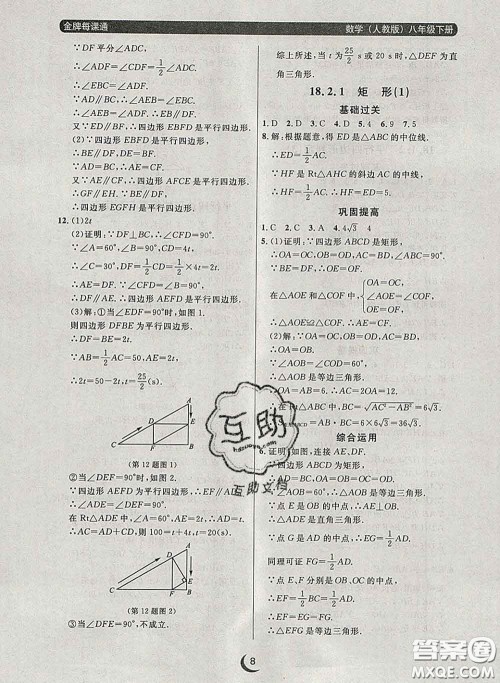 金牌每课通
数学(人教版)八年级下册
∵DF平分∠ADC,
∴∠ADF=∠CDF=1/2∠ADC.
∵BC∥AD,∴∠AEB=∠CDF.
∴BE∥DF.
又∵ED∥BF,
∴四边形EBFD是平行四边形.
(2)∵四边形EBFD是平行四边形,
∴DE=BF.
∵AD=BC,∴AE=CF.
又∵AE∥CF,
∴四边形AFCE是平行四边形.
∴GF∥EH.
又∵EG∥FH,
∴四边形EGFH是平行四边形.
12.(1)2t
(2)证明:∵DF⊥BC,∴∠CFD=90°.
∵∠A=60°,∠B=90°,CD=4t,
∴∠C=30°,DF=1/2CD=2t.
∴AE=DF.
∵∠CFD=∠B=90°,
∴DF∥AE.
∴四边形AEFD是平行四边形.
(3)解:①当∠EDF=90°时,如图1.
则四边形DFBE为平行四边形.
∴DF=BE.
∵AB=1/2AC=50,AE=2t,
∴2t=50-2t,t=25/2(s).
A
D
E
C
F
B
(第12题图1)
②当∠DEF=90°时,如图2.
∵四边形AEFD为平行四边形,∴EF∥AD.
∴∠ADE=∠DEF=90°.
在Rt△ADE中,∠A=60°,AE=2t,
∴AD=1/2AE=t.
又∵AD+CD=AC,∴100=t+4t,t=20(s).
A
D
E
C
F
B
(第12题图2)
③当∠DFE=90°,不成立.
综上所述,当t为25/2s或20s时,△DEF为直
角三角形.
18.2.1 矩形(1)
基础过关
1.D 2.D 3.C 4.D 5.4 6.9 7.5
8.解:根据题意,得ED是△ABC的中位线.
∴ED=1/2AC.
∵HF是Rt△AHC的斜边AC的中线,
∴HF=1/2AC.
∴HF=ED=8.
巩固提高
1.C 2.C 3.4√3 4.4
5.(1)证明:∵四边形ABCD是矩形,
∴OA=OC,OB=OD,AC=BD.
∵BE=DF,∴OE=OF.
在△AOE和△COF中,{OA=OC,
∠AOE=∠COF,
OE=OF,
∴△AOE≌△COF.∴AE=CF.
(2)解:∵OA=OC,OB=OD,AC=BD,
∴OA=OB.
∵∠AOB=∠COD=60°,
∴△AOB是等边三角形.
∴OA=AB=6.∴AC=2OA=12.
∴在Rt△ABC中,BC=√(AC²-AB²)=6√3.
=AB·BC=6×6√3=36√3.
综合运用
6.证明:如图,连接AE,DG.
∵四边形ABCD为矩形,
∴OA=OB=OC=OD.
∵∠AOB=60°,
∴△AOB是等边三角形.
∵点E是OB的中点,
∴AE⊥OB.
∴△ADE是直角三角形.
∵点F是AD的中点,
∴EF=1/2AD.
同理可证FG=1/2AD.
∵点E,G分别是OB,OC的中点,
∴EG=1/2BC=1/2AD.
∴EF=EG=FG.
∴△EFG是等边三角形.
8
互助
互助文档
答案圈
MXQE.COM